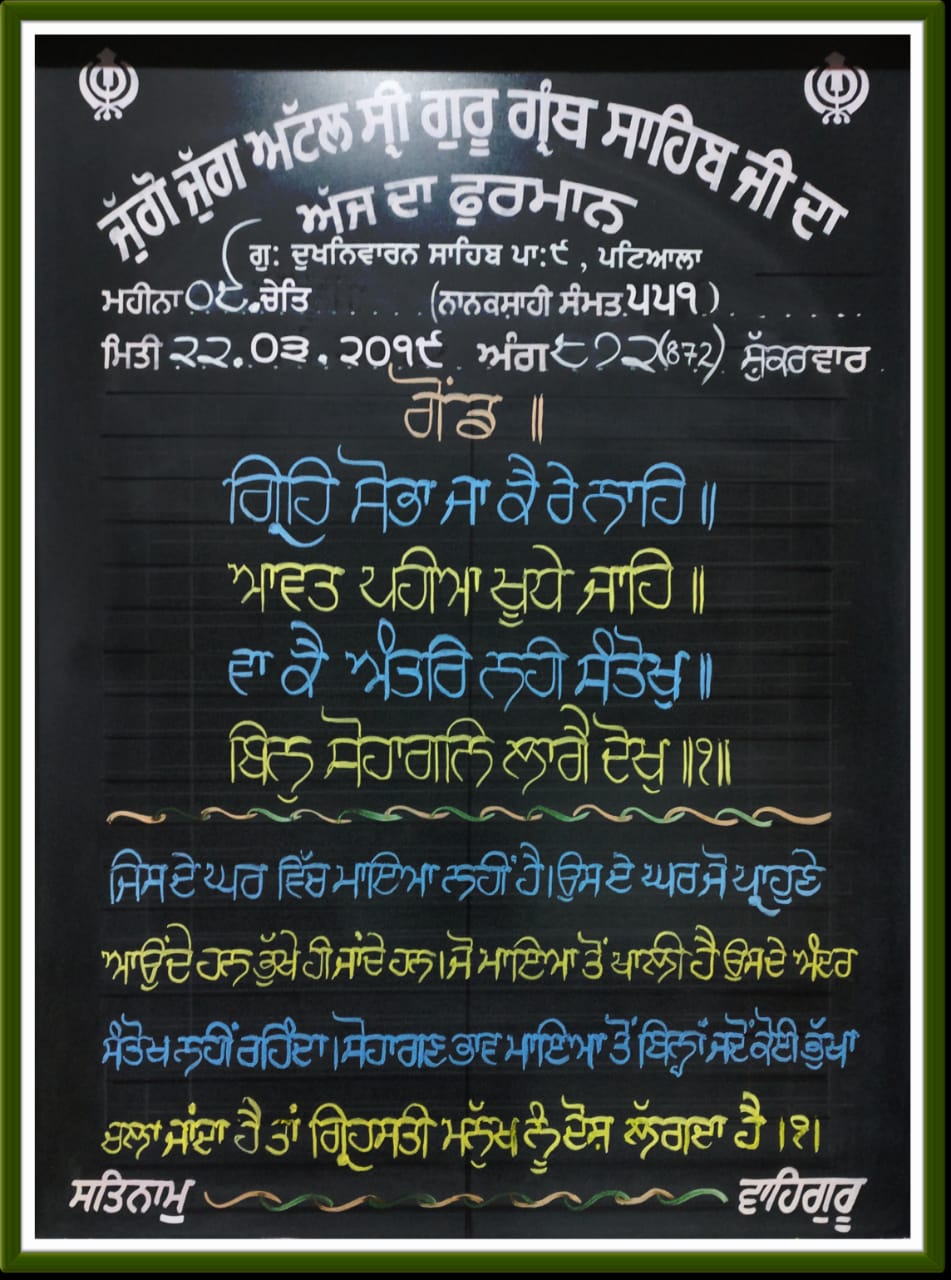 ਜੁੱਗੋ ਜੁੱਗ ਅਟੱਲ ਸ੍ਰੀ ਗੁਰੂ ਗ੍ਰੰਥ ਸਾਹਿਬ ਜੀ ਦਾ
ਅੱਜ ਦਾ ਫੁਰਮਾਨ
ਗੁ: ਦੁਖਨਿਵਾਰਨ ਸਾਹਿਬ ਪਾ:੯ , ਪਟਿਆਲਾ
ਮਹੀਨਾ ੦੯.ਚੇਤਿ (ਨਾਨਕਸ਼ਾਹੀ ਸੰਮਤ ੫੫੧)
ਮਿਤੀ ੨੨.੦੩.੨੦੧੯ ਅੰਗ ੮੭੨(872) ਸ਼ੁੱਕਰਵਾਰ
ਗੋਂਡ ॥
ਗ੍ਰਿਹਿ ਸੋਭਾ ਜਾ ਕੈ ਰੇ ਨਾਹਿ ॥
ਆਵਤ ਪਹੀਆ ਖੂਧੇ ਜਾਹਿ ॥
ਵਾ ਕੈ ਅੰਤਰਿ ਨਹੀ ਸੰਤੋਖੁ ॥
ਬਿਨੁ ਸੋਹਾਗਨਿ ਲਾਗੈ ਦੋਖੁ ॥੧॥
ਜਿਸ ਦੇ ਘਰ ਵਿੱਚ ਮਾਇਆ ਨਹੀਂ ਹੈ। ਉਸ ਦੇ ਘਰ ਜੋ ਪ੍ਰਾਹੁਣੇ
ਆਉਂਦੇ ਹਨ ਭੁੱਖੇ ਹੀ ਜਾਂਦੇ ਹਨ। ਜੋ ਮਾਇਆ ਤੋਂ ਖਾਲੀ ਹੈ ਉਸਦੇ ਅੰਦਰ
ਸੰਤੋਖ ਨਹੀਂ ਰਹਿੰਦਾ। ਸੋਹਾਗਣ ਭਾਵ ਮਾਇਆ ਤੋਂ ਬਿਨ੍ਹਾਂ ਜਦੋਂ ਕੋਈ ਭੁੱਖਾ
ਚਲਾ ਜਾਂਦਾ ਹੈ ਤਾਂ ਗ੍ਰਿਹਸਤੀ ਮਨੁੱਖ ਨੂੰ ਦੋਸ਼ ਲੱਗਦਾ ਹੈ ।੧।
ਸਤਿਨਾਮੁ ਵਾਹਿਗੁਰੂ